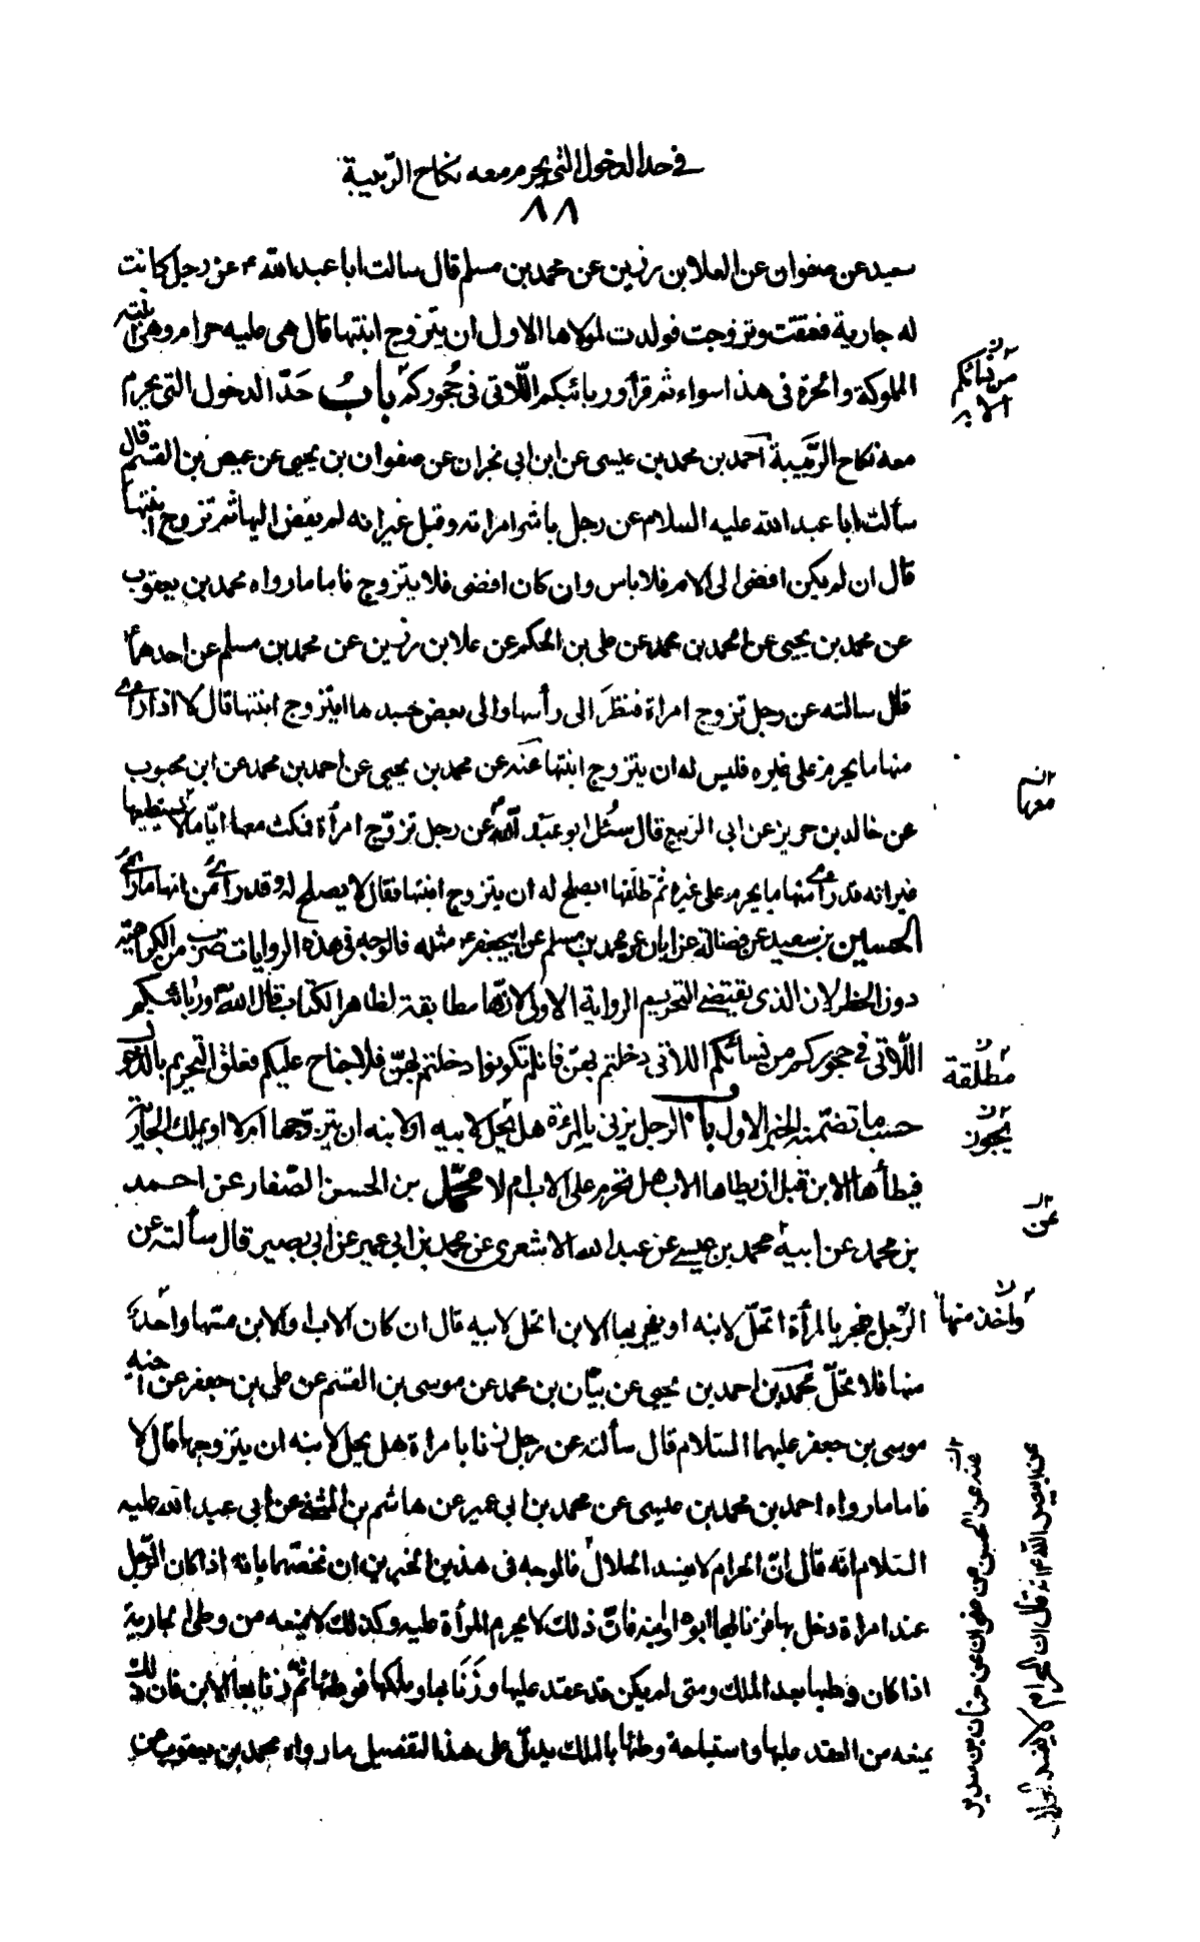 في حد الدخول التي يحرم معه نكاح الربيبة
٨٨
سعيد عن صفوان عن العلا بن رزين عن محمد بن مسلم قال سالت ابا عبد الله ع عن رجل كانت
له جارية فعتقت وتزوجت فولدت لمولاها الاول ان يتزوج ابنتها قال هي عليه حرام وهي ابنته
المملوكة والحرة في هذا سواء ثم قرأ وربائبكم اللاتي في حُجوركم بابُ حَدّ الدخول التي يحرم
من نسائكم
الاية
معه نكاح الرَّبيبة احمد بن محمد بن عيسى عن ابن ابي نجران عن صفوان بن يحيى عن عيص بن القسم قال
سألت ابا عبد الله عليه السلام عن رجل باشر امراته وقبل غير انه لم يفض اليها ثم تزوج ابنتها
قال ان لم يكن افضى الى الام فلا باس وان كان افضى فلا يتزوج فاما ما رواه محمد بن يعقوب
عن محمد بن يحيى عن احمد بن محمد عن علي بن الحكم عن علا بن رزين عن محمد بن مسلم عن احدهما ع
قال سالته عن رجل تزوج امراة فنظَرَ الى رأسها والى بعض جسدها ايتزوج ابنتها قال لا اذا راى
منها ما يحرم على غيره فليس له ان يتزوج ابنتها عنه عن محمد بن يحيى عن احمد بن محمد عن ابن محبوب
انه
معها
عن خالد بن حريز عن ابي الربيع قال سُئل ابو عبد الله ع عن رجل تزوّج امرأة فمكث معها ايّاما لا يستطيعها
غير انه قد راى منها ما يحرم على غيره ثمّ طلّقها ايصلح له ان يتزوج ابنتها فقال لا يصلح له وقد راى من امها ما راى
الحسين بن سعيد عن فضالة عن ابان عن محمد بن مسلم عن ابيجعفر ع مثله فالوجه في هذه الروايات ضرب من الكراهية
دون الحظر لان الذي يقتضي التحريم الرواية الاولى لانّها مطابقة لظاهر الكتاب قال الله وربائبكم
اللّاتي في حجوركم من نسائكم اللاتي دخلتم بهنّ فان لم تكونوا دخلتم بهنّ فلا جناح عليكم فعلق التحريم بالدخول
مطلقة
حسب ما تضمنه الخبر الاول باب الرجل يزني بالمرءة هل يحل لابيه او لابنه ان يتزوجها ام لا او يملك الجارية
يجوز
فيطأها الابن قبل ان يطاها الاب هل تحرم على الاب ام لا محمّد بن الحسن الصّفار عن احمد
عن
بن محمد عن ابيه محمد بن عيسى عن عبد الله الاشعري عن محمد بن ابي عمير عن ابي بصير قال سألته عن
الرّجل يفجر بالمرأة اتحلّ لابنه او يفجر بها الابن اتحل لابيه قال ان كان الاب او الابن مسّها واحد
واخذ منها
منها فلا تحلّ محمد بن احمد بن يحيى عن بنان بن محمد عن موسى بن القسم عن علي بن جعفر عن اخيه
موسى بن جعفر عليهما السّلام قال سألته عن رجل زنا بامراة هل يحل لابنه ان يتزوجها قال لا
فاما ما رواه احمد بن محمد بن عيسى عن محمد بن ابي عمير عن هاشم بن المثنى عن ابي عبد الله عليه
السّلام انّه قال انّ الحرام لا يفسد الحلالُ فالوجه في هذين الخبرين ان نخصّهما بانه اذا كان الرّجل
عند امراة دخل بها فزنا بها ابوه او ابنه فانّ ذلك لا يحرم المرأة عليه وكذلك لا يمنعه من وطى الجارية
اذا كان وطيها بعد الملك ومتى لم يكن قد عقد عليها وزَنَا بها وملكها فوطئها ثمّ زنا بها الابن فان ذلك
يمنعه من العقد عليها واستباحة وطئها بالملك يدلّ على هذا التفصيل ما رواه محمد بن يعقوب عن
عنه عن الحسين عن صفوان عن حنان بن سدير